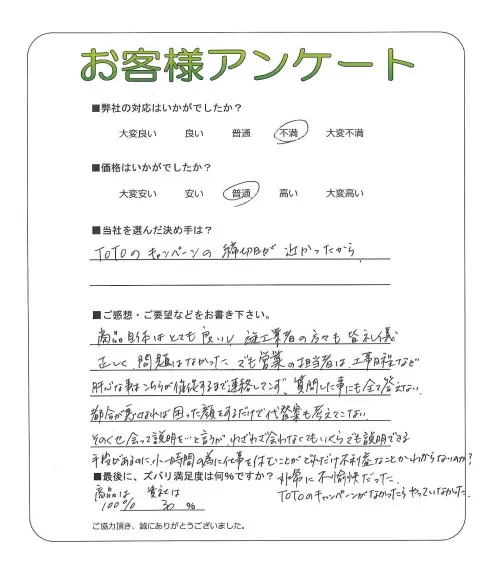 お客様アンケート
■弊社の対応はいかがでしたか？
大変良い 良い 普通 不満 大変不満
■価格はいかがでしたか？
大変安い 安い 普通 高い 大変高い
■当社を選んだ決め手は？
TOTOのキャンペーンの締切日が近かったから
■ご感想・ご要望などをお書き下さい。
商品自体はとても良いし、施工業者の方々も皆礼儀
正しく問題はなかった でも営業の担当者は、工事日程など
肝心な事はこちらが催促するまで連絡してこず、質問した事にも全て答えない。
都合が悪ければ困った顔をするだけで代替案も考えてこない
そのくせ会って説明を…と言うが、わざわざ会わなくてもいくらでも説明できる
手段があるのに、小一時間の為に仕事を休むことがどれだけ不利益なことかわからないのか？
■最後に、ズバリ満足度は何％ですか？ 非常に不愉快だった。
商品は 貴社は TOTOのキャンペーンがなかったらやっていなかった。
100% 30 %
ご協力頂き、誠にありがとうございました。